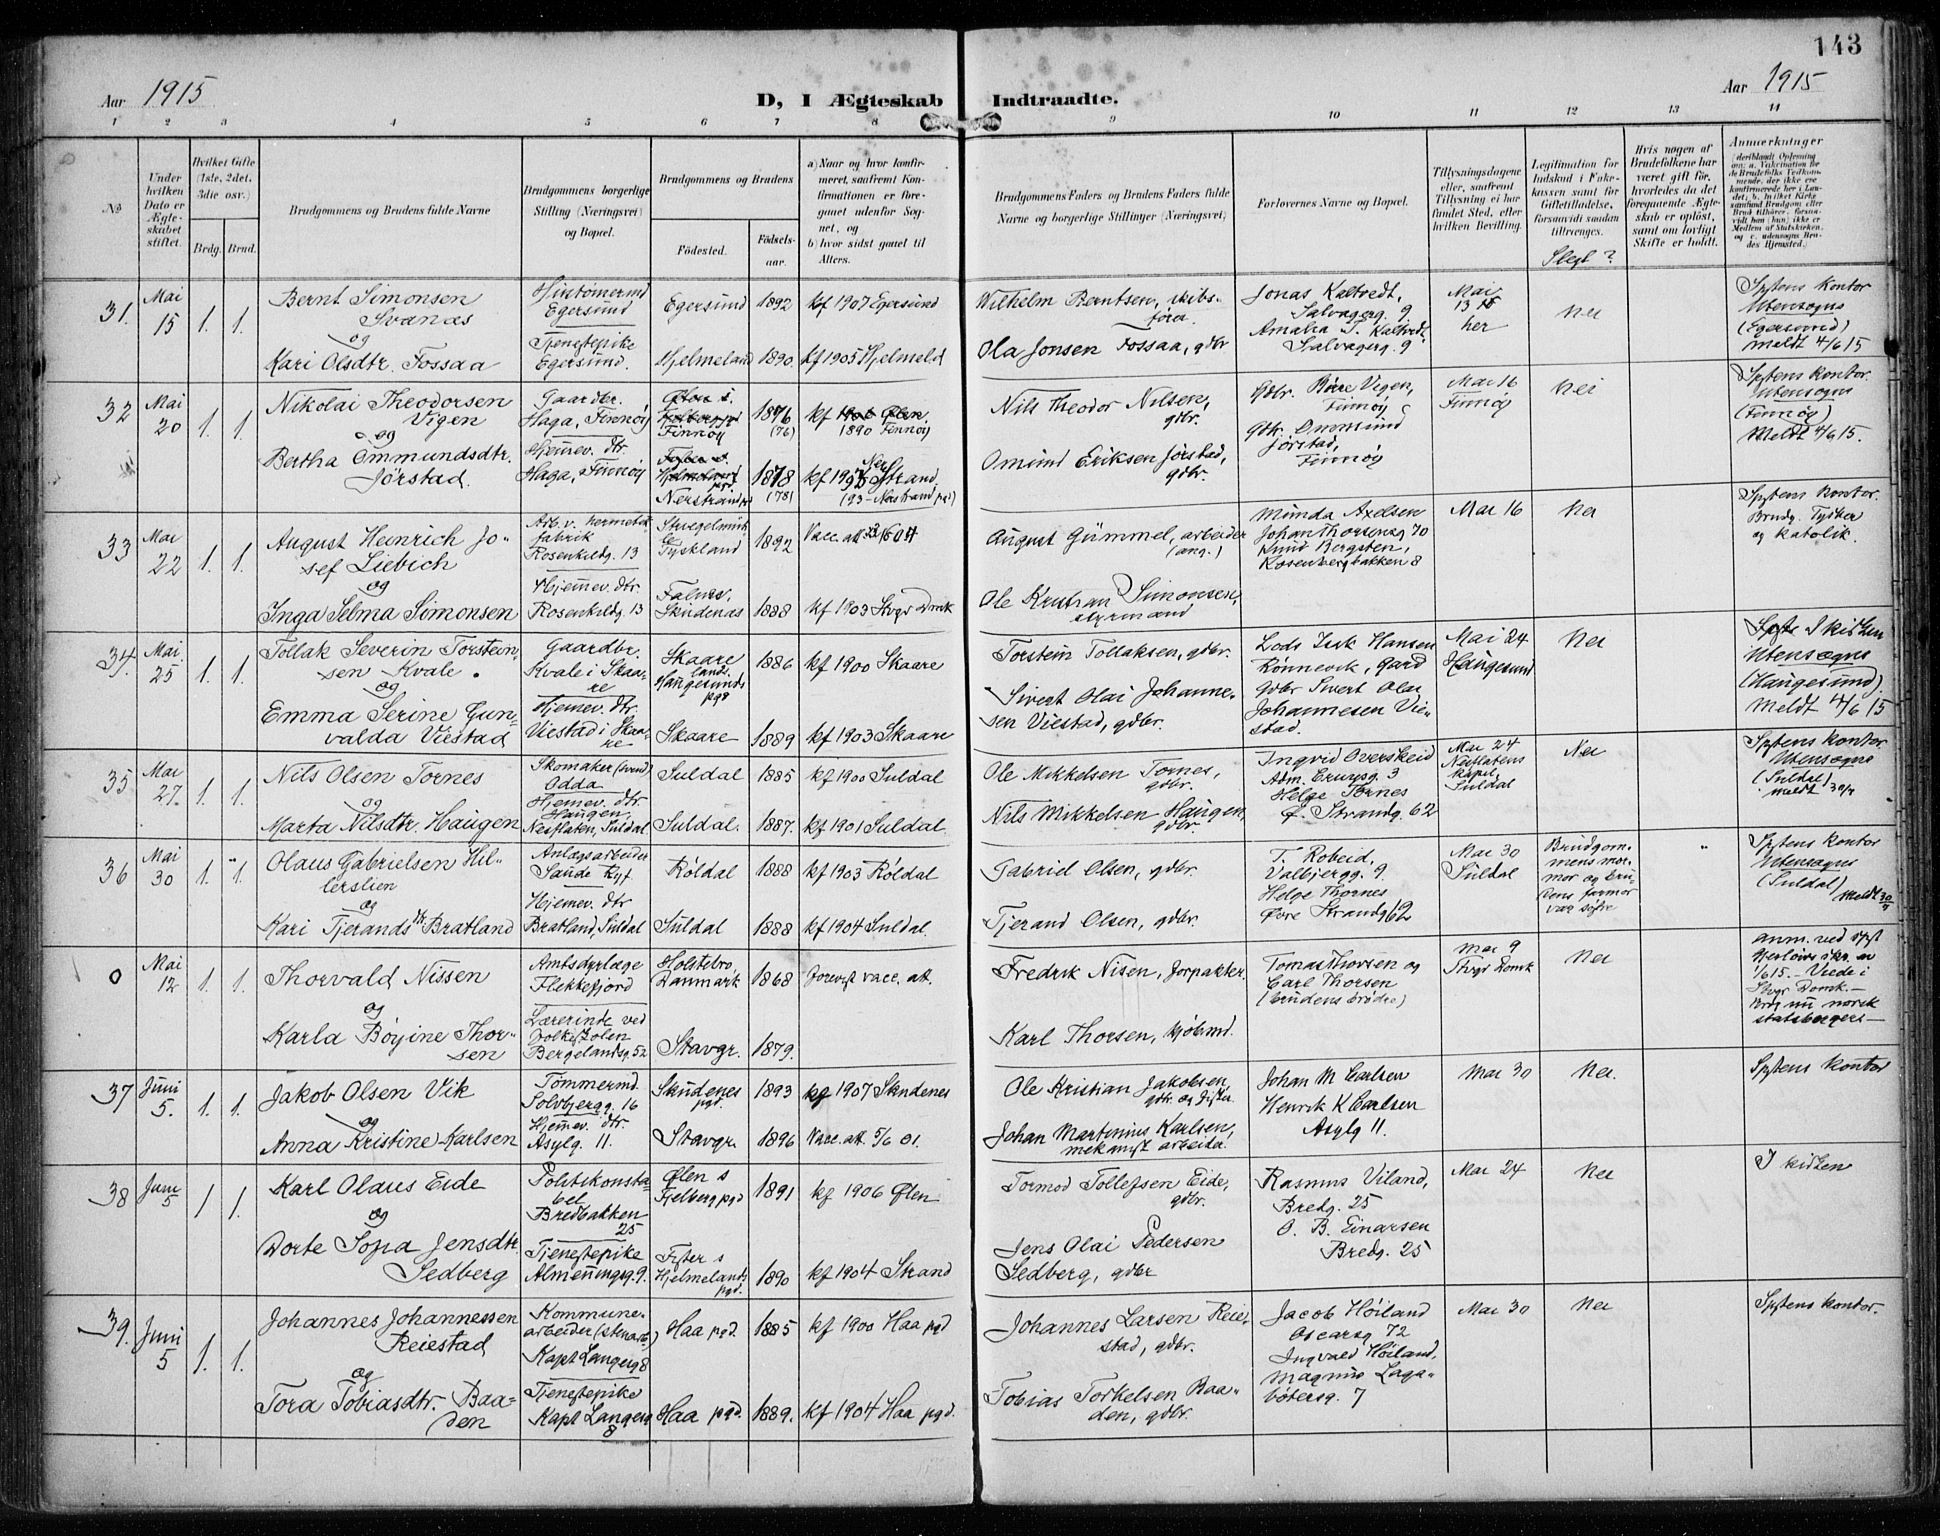 143
Aar 1915
D, I Ægteskab Indtraadte.
Aar 1915
1 2 3 4 5 6 7 8 9 10 11 12 13 14
No
Under hvilken Dato er Ægteskabet stiftet.
Hvilket Gifte (1ste, 2det, 3die osv.)
Brdg. Brud.
Brudgommens og Brudens fulde Navne
Brudgommens borgerlige Stilling (Næringsvei) og Bopæl.
Brudgommens og Brudens
Fødested.
Fødselsaar.
a) Naar og hvor konfirmeret, saafremt Konfirmationen er foregaaet udenfor Sognet, og
b) hvor sidst gaaet til Alters.
Brudgommens Faders og Brudens Faders fulde Navne og borgerlige Stillinger (Næringsvei)
Forlovernes Navne og Bopæl.
Tillysningsdagene eller, saafremt Tillysning ei har fundet Sted, efter hvilken Bevilling.
Legitimation for Indskud i Enkekassen samt for Giftetilladelse, forsaavidt saadan tiltrænges.
Slegt?
Hvis nogen af Brudefolkene har været gift før, hvorledes da det foregaaende Ægteskab er opløst, samt om lovligt Skifte er holdt.
Anmerkninger
31. Mai 15 1. 1.
Bernt Simonsen Svanæs
og
Kari Olsdtr. Fossaa
Egersund
Tjenestepike Egersund.
Egersund 1892 kf 1907 Egersund
Hjelmeland 1890. kf 1905 Hjelmeld
Wilhelm Berntsen, skibsfører.
Ola Jonsen Fossaa, gdbr
Jonas Kaltvedt, Salvagerg. 9
Amalia T. Kaltvedt Salvagerg. 9
Mai 13 her
Nei
Spstens kontor Utensogns (Egersund) meldt 4/6 15
32 Mai 20 1. 1.
Nikolai Theodorsen Vigen
og
Bertha Ommundsdtr. Jørstad.
Gaardbr. Haga, Finnøy
Hjemmev. dtr. Haga, Finnøy
Finnøy 1876 (76) kf 1890 Finnøy
Nerstrand pgd 1878 (78) Strand (93 - Nerstrand pgd)
Nils Theodor Nilsen, gdbr.
Omund Eriksen Jørstad, gdbr.
Gdbr. Børe Vigen, Finnøy
Gdbr. Ommund Jørstad, Finnøy
Mai 16 Finnøy
nei
Spstens kontor. Utensogns (Finnøy) Meldt 4/6 15.
33 Mai 22 1. 1.
August Heinrich Josef Liebich
og
Inga Selma Simonsen
Arb. v. hermetikfabrik Rosenkildg. 13
Hjemmev. dtr. Rosenkildg. 13
Tyskland 1892 Vacc. att.
Falnes, Skudenæs 1888 kf. 1903 Stvgr Domk
August Gümmel, arbeider (ang.)
Ole Kristian Simonsen, styrmand
Munda Axelsen Johan Thorsensg 70
Knud Bergsten, Rosenbergbakken 8
Mai 16
Nei
Spstens kontor. Brudg. Tysker og katolik.
34. Mai 25 1. 1.
Tollak Severin Torsteinsen Kvale.
og
Emma Serine Gunvalda Viestad
Gaardbr. Kvale i Skaare
Hjemev. dtr. Viestad i Skaare
Skaare lands. Haugesunds pgd 1886 kf. 1900 Skaare
Skaare 1889 kf 1903 Skaare
Torstein Tollaksen, gdbr.
Sivert Olai Johannesen Viestad, gdbr.
Lods Isak Hansen Rønnevik, gaard
Gdbr Sivert Olai Johannesen Viestad.
Mai 24 Haugesund
Nei
I kirken Utensogns (Haugesund) Meldt 4/6 15
35 Mai 27. 1. 1.
Nils Olsen Tornes
og
Marta Nilsdtr. Haugen
Skomaker (svend) Odda
Hjemev. dtr. Haugen, Nesflaten, Suldal
Suldal 1885 kf 1900 Suldal
Suldal. 1887. kf 1901 Suldal.
Ole Mikkelsen Tornes, gdbr.
Nils Mikkelsen Haugen, gdbr.
Ingvid Overskeid Adm. Cruysg. 3
Helge Tornes Ø. Strandg. 62
Mai 24 Nesflatens kapel, Suldal
Nei
Spstens kontor Utensogns (Suldal) Meldt 30/7
36 Mai 30 1. 1.
Olaus Gabrielsen Hillerslien
og
Kari Tjerandsdtr Bratland
Anlægsarbeider Saude Ryf
Hjemev. dtr Bratland, Suldal
Røldal 1888 kf 1903 Røldal
Suldal 1888 kf 1904 Suldal.
Gabriel Olsen, gdbr.
Tjerand Olsen, gdbr.
T. Robeid. Valbjergg. 9.
Helge Thornes Øvre Strandg 62
Mai 30 Suldal
Brudgommens mormor og brudens farmor var søstre
Spstens kontor Utensogns (Suldal) Meldt 30/7
0 Mai 12 1. 1.
Thorvald Nissen
og
Karla Børjine Thorsen
Amtsdyrlæge Flekkefjord
Lærerinde ved Folkeskolen Bergelandsg. 52
Holstebro, Danmark 1868 forevist vacc. att.
Stavgr. 1879.
Fredrik Nisen, forpakter.
Karl Thorsen, kjøbmd.
Tomas Thorsen og Carl Thorsen (brudens brødre)
Mai 9 Stvgr Domk
Nei
1/6 15. - Viede i Stvgr Domk. - Brdg nu norsk statsborger -
37 Juni 5. 1. 1.
Jakob Olsen Vik
og
Anna Kristine Karlsen
Tømmermd. Solvbjergg. 16
Hjemev. dtr. Asylg. 11.
Skudenes pgd. 1893 kf 1907 Skudenes
Stavgr 1896 Vacc. att. 5/6 01.
Ole Kristian Jakobsen, gdbr. og fisker.
Johan Martinius Karlsen, mekanisk arbeider.
Johan M Carlsen
Henrik K Carlsen Asylg 11.
Mai 30
Nei.
Spstens kontor
38 Juni 5 1 1.
Karl Olaus Eide
og
Dorte Sofia Jensdtr. Sedberg
Politikonstabel Bredbakken 25
Tjenestepike Almenningsg. 9.
Ølen s Fjelberg pgd 1891 kf 1906 Ølen
Fister s Hjelmelands pgd. 1890 kf 1904 Strand
Tormod Tollefsen Eide, gdbr.
Jens Olai Pedersen Sedberg, gdbr
Rasmus Viland, Bredg. 25
O. B. Einarsen Bredg. 25
Mai 24
Nei
I kirken
39. Juni 5 1. 1.
Johannes Johannessen Reiestad
og
Tora Tobiasdtr. Baaden
Kommunearbeider (stenarb) Kapt Langesg 8
Tjenestepike Kapt Langesg 8
Haa pgd. 1885 kf 1900 Haa pgd
Haa pgd. 1889. kf 1904 Haa pgd.
Johannes Larsen Reiestad, gdbr.
Tobias Torkelsen Baaden, gdbr.
Jacob Høiland Oscarsg 72
Ingvald Høiland, Magnus Lagabøtersg. 7
Mai 30
Nei
Spstens kontor.